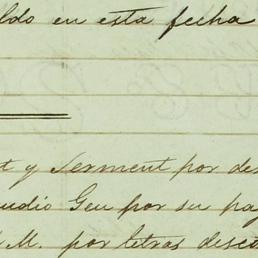 ldo en esta fecha
t y Serment por des
udio Geu por su pag
M. por letras desco